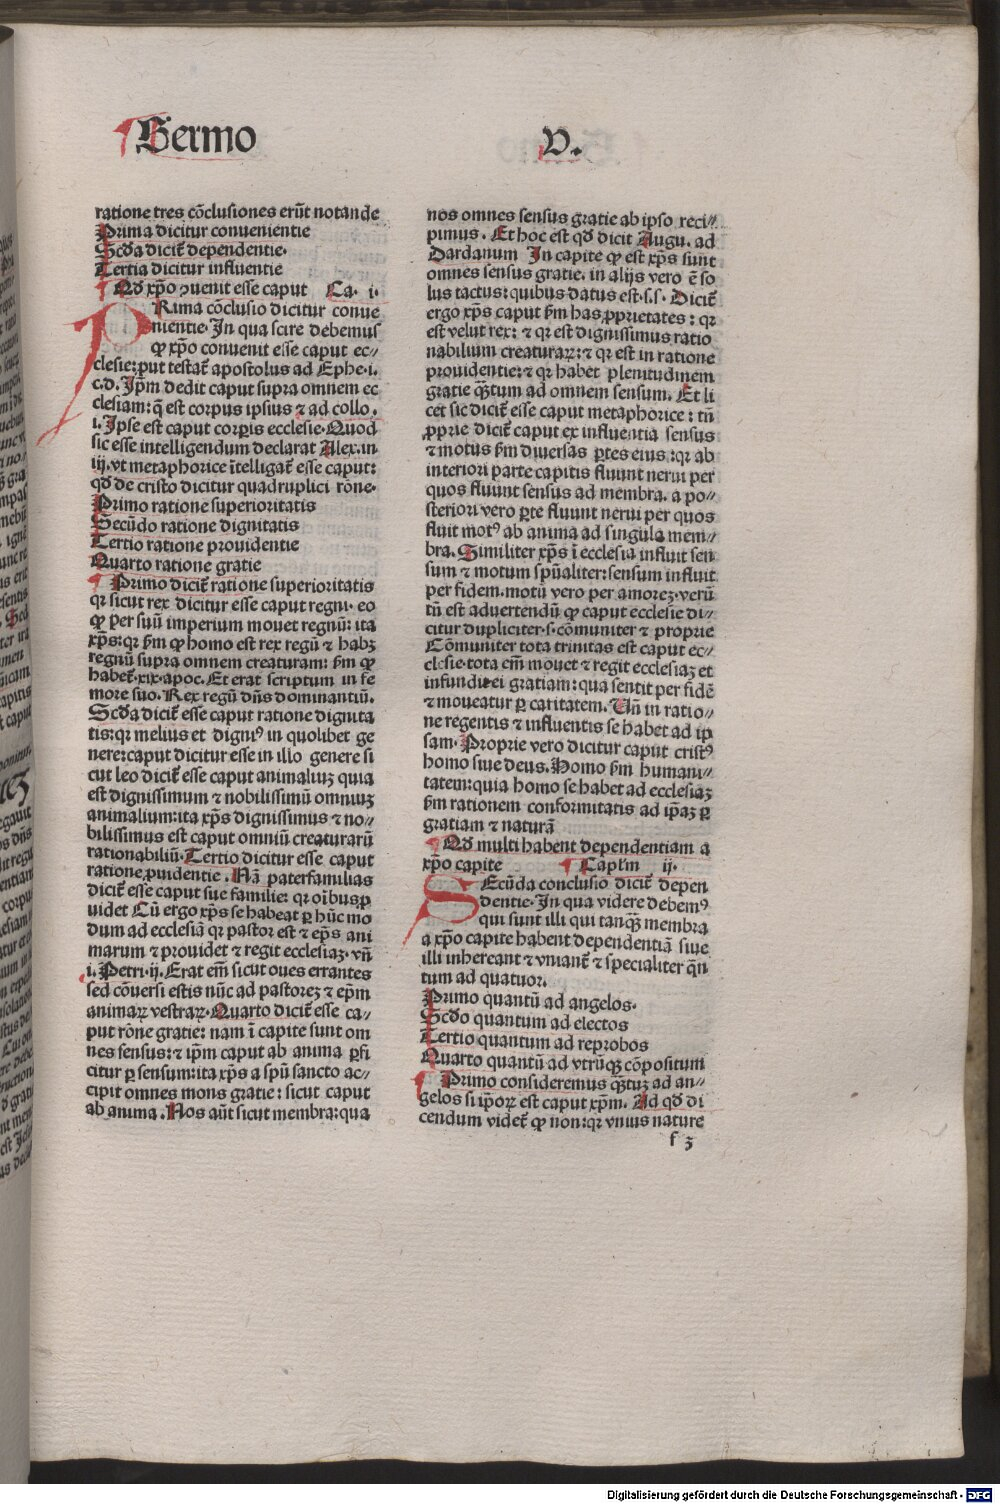 Sermo V.
ratione tres cōclusiones erūt notande
Prima dicitur conuenientie
Scďa dicit̄ dependentie.
Tertia dicitur influentie
Qď xp̄o ꝯuenit esse caput Ca. i.
PRima cōclusio dicitur conue
nientie. In qua scire debemus
ꝙ xp̄o conuenit esse caput ec⸗
clesie: put testat̄ apostolus ad Ephe. i.
c. d. Ip̄m dedit caput supra omnem ec
clesiam: q̄ est corpus ipsius ⁊ ad collo.
i. Ipse est caput corꝑis ecclesie. Quod
sic esse intelligendum declarat Alex. in
iij. vt metaphorice ītelligat̄ esse caput:
qď de cristo dicitur quadruplici rōne.
Primo ratione superioritatis
Secūdo ratione dignitatis
Tertio ratione prouidentie
Quarto ratione gratie
Primo dicit̄ ratione superioritatis
qꝛ sicut rex dicitur esse caput regni. eo
ꝙ per suū imperium mouet regnū: ita
xp̄s: qꝛ ẜm ꝙ homo est rex regū ⁊ habꝫ
regnū supra omnem creaturam: ẜm ꝙ
habet̄. xix. apoc. Et erat scriptum in fe
more suo. Rex regū dn̄s dominantiū.
Scďa dicit̄ esse caput ratione dignita
tis: qꝛ melius et digniꝰ in quolibet ge
nere: caput dicitur esse in illo genere si
cut leo dicit̄ esse caput animaliuꝫ quia
est dignissimum ⁊ nobilissimū omniuꝫ
animalium: ita xp̄s dignissimus ⁊ no⸗
bilissimus est caput omniū creaturarū
rationabiliū. Tertio dicitur esse caput
ratione ꝓuidentie. Nā paterfamilias
dicit̄ esse caput sue familie: qꝛ oībus ꝓ
uidet Cū ergo xp̄s se habeat ꝑ hūc mo
dum ad ecclesiā qꝛ pastor est ⁊ ep̄s ani
marum ⁊ prouidet ⁊ regit ecclesiaꝫ. vn̄
i. Petri. ij. Erat em̄ sicut oues errantes
sed cōuersi estis nūc ad pastoreꝫ ⁊ ep̄m
animaꝝ vestraꝝ. Quarto dicit̄ esse ca⸗
put rōne gratie: nam ī capite sunt om
nes sensus: ⁊ ip̄m caput ab anima ꝑfi
citur ꝑ sensum: ita xp̄s a spū sancto ac⸗
cipit omnes mons gratie: sicut caput
ab anima. Nos aūt sicut membra: qua
nos omnes sensus gratie ab ipso reci⸗
pimus. Et hoc est qď dicit Augu. ad
Dardanum In capite ꝙ est xp̄s sunt
omnes sensus gratie. in alijs vero ē so
lus tactus: quibus datus est. s. s. Dicit̄
ergo xp̄s caput ẜm has ꝓprietates: qꝛ
est velut rex: ⁊ qꝛ est dignissimus ratio
nabilium creaturaꝝ: ⁊ qꝛ est in ratione
prouidentie: ⁊ qꝛ habet plenitudinem
gratie qꝫtum ad omnem sensum. Et li
cet sic dicit̄ esse caput metaphorice: tn̄
ꝓprie dicit̄ caput ex influentia sensus
⁊ motus ẜm diuersas ꝑtes eius: qꝛ ab
interiori parte capitis fluunt nerui per
quos fluunt sensus ad membra. a po⸗
steriori vero ꝑte fluunt nerui per quos
fluit motꝰ ab anima ad singula mem⸗
bra. Similiter xp̄s ī ecclesia influit sen
sum ⁊ motum spūaliter: sensum influit
per fidem. motū vero per amoreꝫ. verū
tn̄ est aduertendū ꝙ caput ecclesie di⸗
citur dupliciter. s. cōmuniter ⁊ proprie
Cōmuniter tota trinitas est caput ec⸗
clesie. tota em̄ mouet ⁊ regit ecclesiaꝫ et
infundit ei gratiam: qua sentit per fidē
⁊ moueatur ꝑ caritatem. Un̄ in ratio⸗
ne regentis ⁊ influentis se habet ad ip
sam. Proprie vero dicitur caput cristꝰ
homo siue deus. Homo ẜm humani⸗
tatem: quia homo se habet ad ecclesiaꝫ
ẜm rationem conformitatis ad ip̄aꝫ ꝑ
gratiam ⁊ naturā
Qď multi habent dependentiam a
xp̄o capite Captm̄ ij.
SEcūda conclusio dicit̄ depen
dentie. In qua videre debemꝰ
qui sunt illi qui tanqꝫ membra
a xp̄o capite habent dependentiā siue
illi inhereant ⁊ vniant̄ ⁊ specialiter qn̄
tum ad quatuor.
Primo quantū ad angelos.
Scďo quantum ad electos
Tertio quantum ad reprobos
Quarto quantū ad vtrūqꝫ cōpositum
Primo consideremus qꝫtuꝫ ad an⸗
gelos si ip̄oꝝ est caput xp̄m. Ad qď di
cendum videt̄ ꝙ non: qꝛ vnius nature
f 3
Digitalisierung gefördert durch die Deutsche Forschungsgemeinschaft - DFG